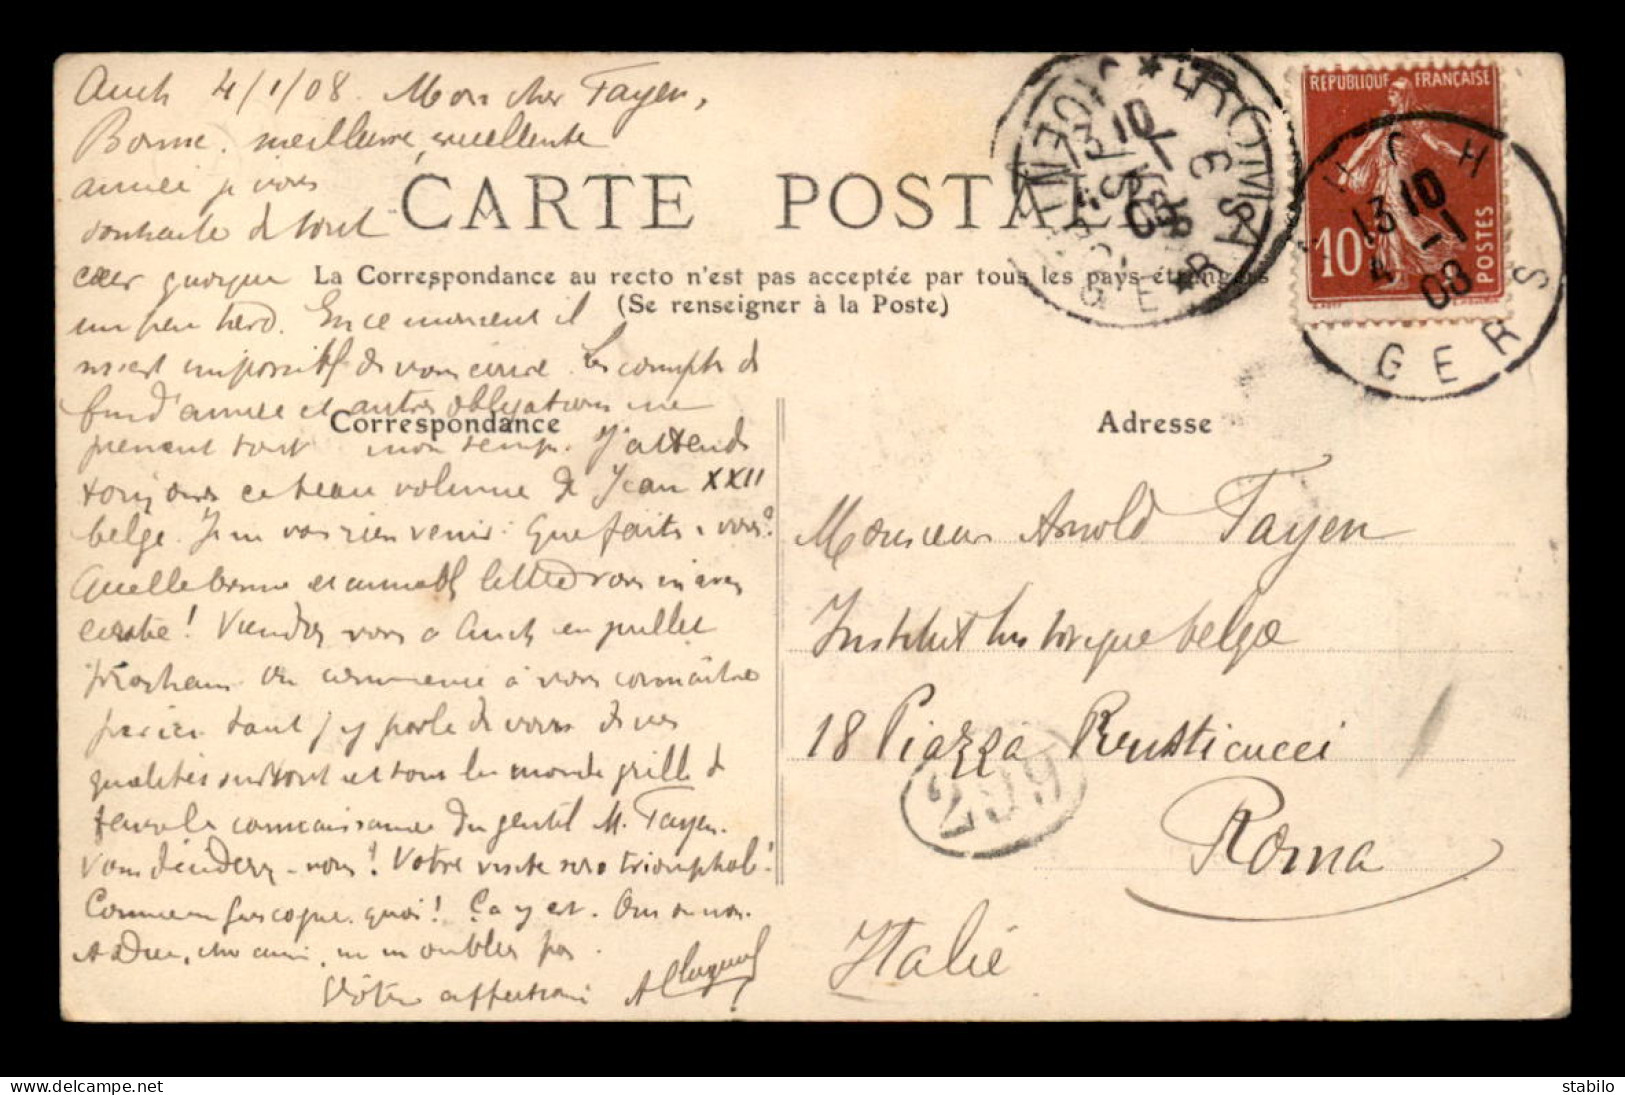 Auch 4/1/08. Mon cher Fayen,
Bonne, meilleure, excellente
année je vous
souhaite de tout
cœur quoique
un peu tard. En ce moment il
m'est impossible de vous écrire. Les comptes de
fin d'année et autres obligations me
prenent tout mon temps. J'attends
toujours ce beau volume de Jean XXII
belge. Je ne vois rien venir. Que faites-vous?
Quelle bonne et aimable lettre vous m'avez
écrite! Viendrez vous à Auch en juillet
prochain. On commence à vous connaître
par ici tant j'y parle de vous de vos
qualités surtout et tout le monde grille de
faire la connaissance du gentil M. Fayen.
Vous viendrez-nous! Votre visite sera triomphale!
Comme en Gascogne quoi! Ça y est. Oui ou non.
Adieu, cher ami, ne m'oubliez pas.
Vôtre affectionné
CARTE POSTALE
La Correspondance au recto n'est pas acceptée par tous les pays étrangers
(Se renseigner à la Poste)
Correspondance
Adresse
Monsieur Arnold Fayen
Institut historique belge
18 Piazza Rusticucci
Roma
Italie
209
REPUBLIQUE FRANÇAISE
10c
POSTES
AUCH
13 10
4 -1
08
GERS
13 10
GERS
delcampe.net
stabilo